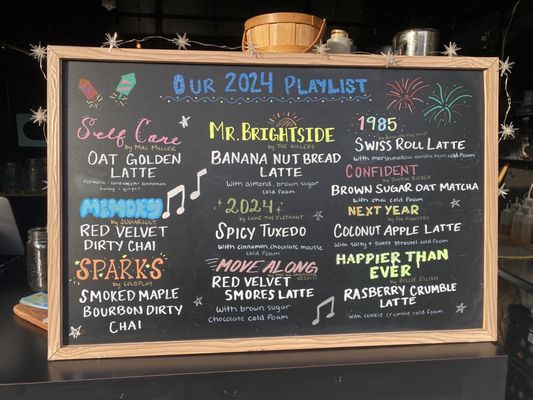 OUR 2024 PLAYLIST
Self Care
by MAC MILLER
OAT GOLDEN
LATTE
turmeric - cardamom - cinnamon
honey + ginger
cold foam
MEMORY
by SUGARCULT
RED VELVET
DIRTY CHAI
SPARKS
by COLDPLAY
SMOKED MAPLE
BOURBON DIRTY
CHAI
MR. BRIGHTSIDE
by THE KILLERS
BANANA NUT BREAD
LATTE
With almond, brown sugar
cold foam
2024
by CAGE THE ELEPHANT
SPICY TUXEDO
with cinnamon, chocolate mousse
cold foam
MOVE ALONG
RED VELVET
SMORES LATTE
with brown sugar
chocolate cold foam
1985
by BOWLING FOR SOUP
SWISS ROLL LATTE
with marshmallow vanilla bean cold foam
CONFIDENT
by JUSTIN BIEBER
BROWN SUGAR OAT MATCHA
with chai cold foam
NEXT YEAR
by FOO FIGHTERS
COCONUT APPLE LATTE
with salty + sweet streusel cold foam
HAPPIER THAN
EVER
by BILLIE EILISH
RASBERRY CRUMBLE
LATTE
with cookie crumble cold foam